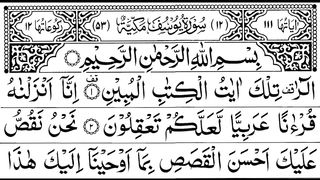 اٰیَاتُهَا ١١١ (١٢) سُوْرَةُ يُوْسُفَ مَكِّيَّةٌ (٥٣) رُكُوْعَاتُهَا ١٢
بِسْمِ اللّٰهِ الرَّحْمٰنِ الرَّحِيْمِ
الٓرٰ ۚ تِلْكَ اٰيٰتُ الْكِتٰبِ الْمُبِيْنِ ۝١ اِنَّآ اَنْزَلْنٰهُ
قُرْءٰنًا عَرَبِيًّا لَّعَلَّكُمْ تَعْقِلُوْنَ ۝٢ نَحْنُ نَقُصُّ
عَلَيْكَ اَحْسَنَ الْقَصَصِ بِمَآ اَوْحَيْنَآ اِلَيْكَ هٰذَا